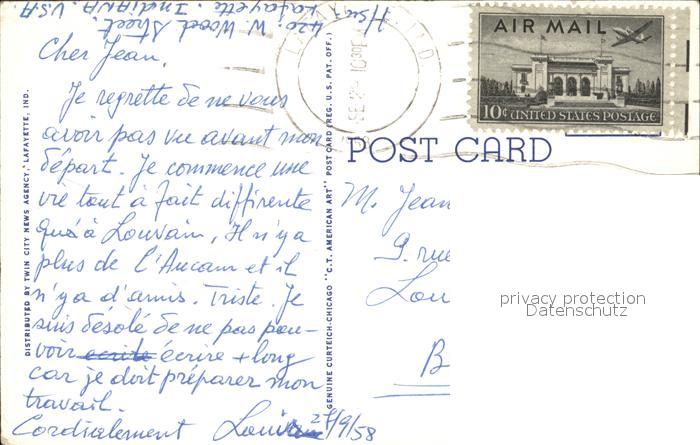 Hsu
420. W. Wood Street.
Lafayette. INDIANA. U.S.A
Cher Jean,
Je regrette de ne vous
avoir pas vu avant mon
départ. Je commence une
vie tout à fait diffirente
qu'à Louvain, Il n'y a
plus de l'Aucam et il
n'y a d'amis. Triste. Je
suis désolé de ne pas pou-
voir écrire + long
car je doit préparer mon
travail.
Cordialement
27/9/58
DISTRIBUTED BY TWIN CITY NEWS AGENCY, LAFAYETTE, IND.
GENUINE CURTEICH-CHICAGO "C.T. AMERICAN ART" POST CARD (REG. U.S. PAT. OFF.)
IND.
10 30
AIR MAIL
10¢ UNITED STATES POSTAGE
POST CARD
M. Jean
9. rue
Lou
B
privacy protection
Datenschutz